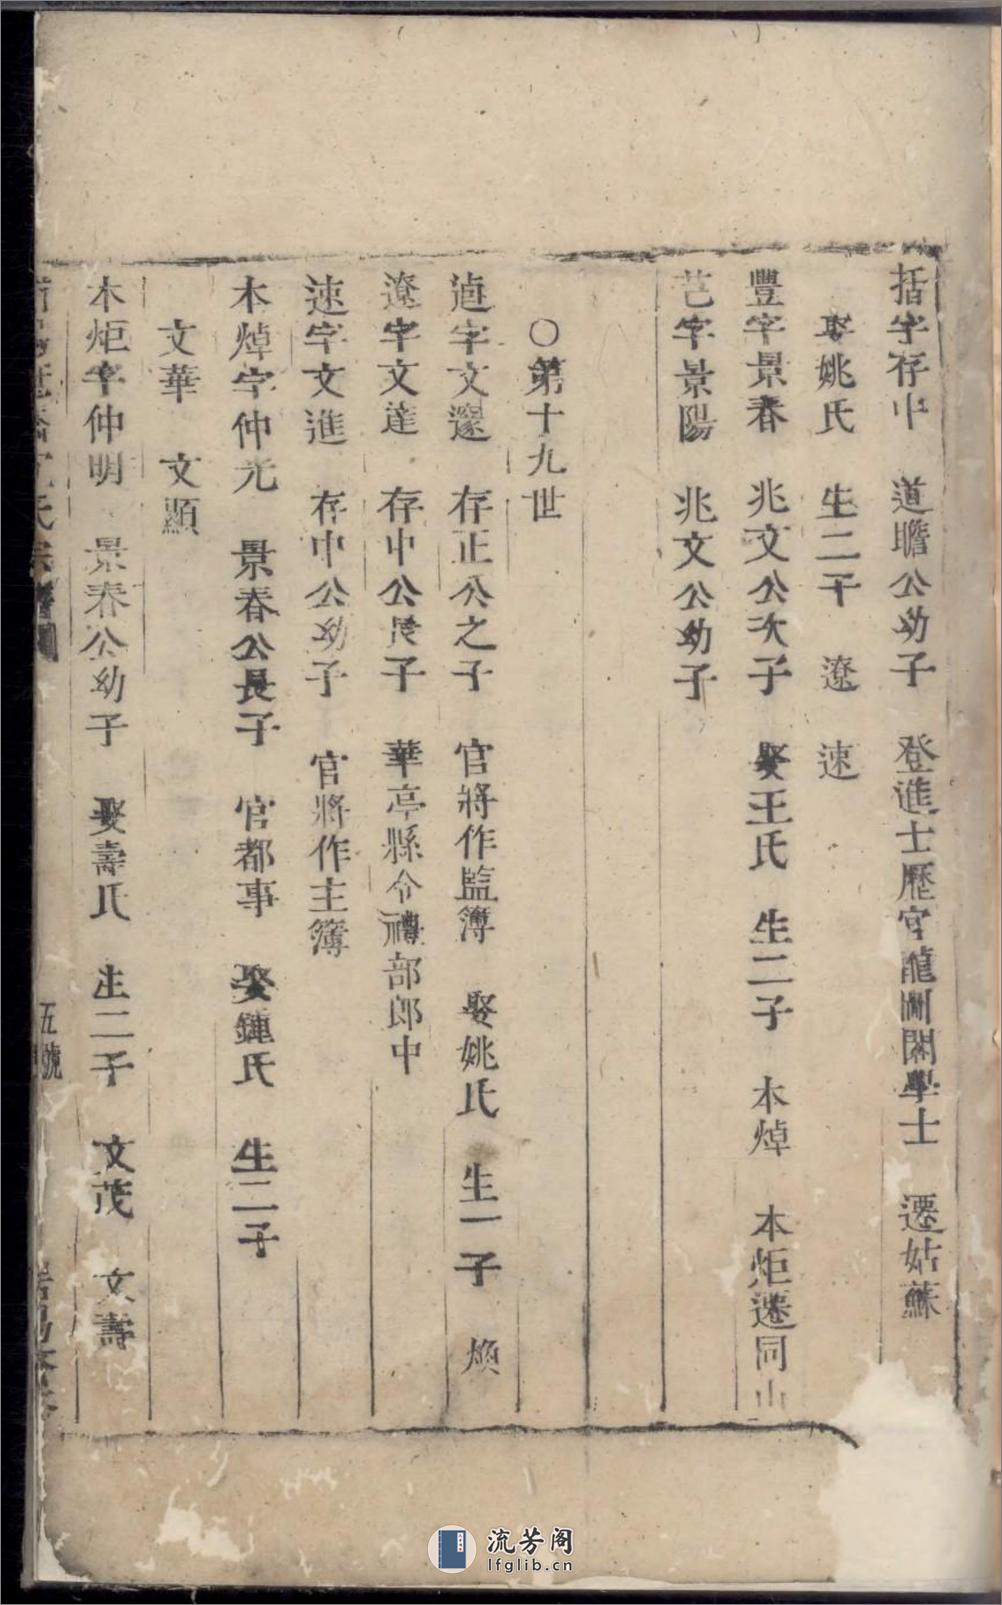 括字存中 道瞻公幼子 登進士歷官龍圖閣學士 遷姑蘇
娶姚氏 生二子 遼 速
豐字景春 兆文公次子 娶王氏 生二子 木焯 木炬遷同山
芑字景陽 兆文公幼子
○第十九世
逌字文邃 存正公之子 官將作監簿 娶姚氏 生一子 煥
遼字文達 存中公長子 華亭縣令禮部郎中
速字文進 存中公幼子 官將作主簿
木焯字仲光 景春公長子 官都事 娶鍾氏 生二子
文華 文顯
木炬字仲明 景春公幼子 娶壽氏 生二子 文茂 文壽
氏宗譜 五號
流芳阁
lfglib.cn